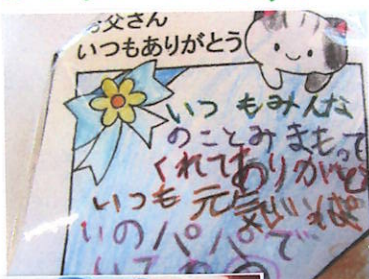 お父さん
いつもありがとう
いつもみんな
のことみまもって
くれてありがとう
いつも元気いっぱ
いのパパで
いて